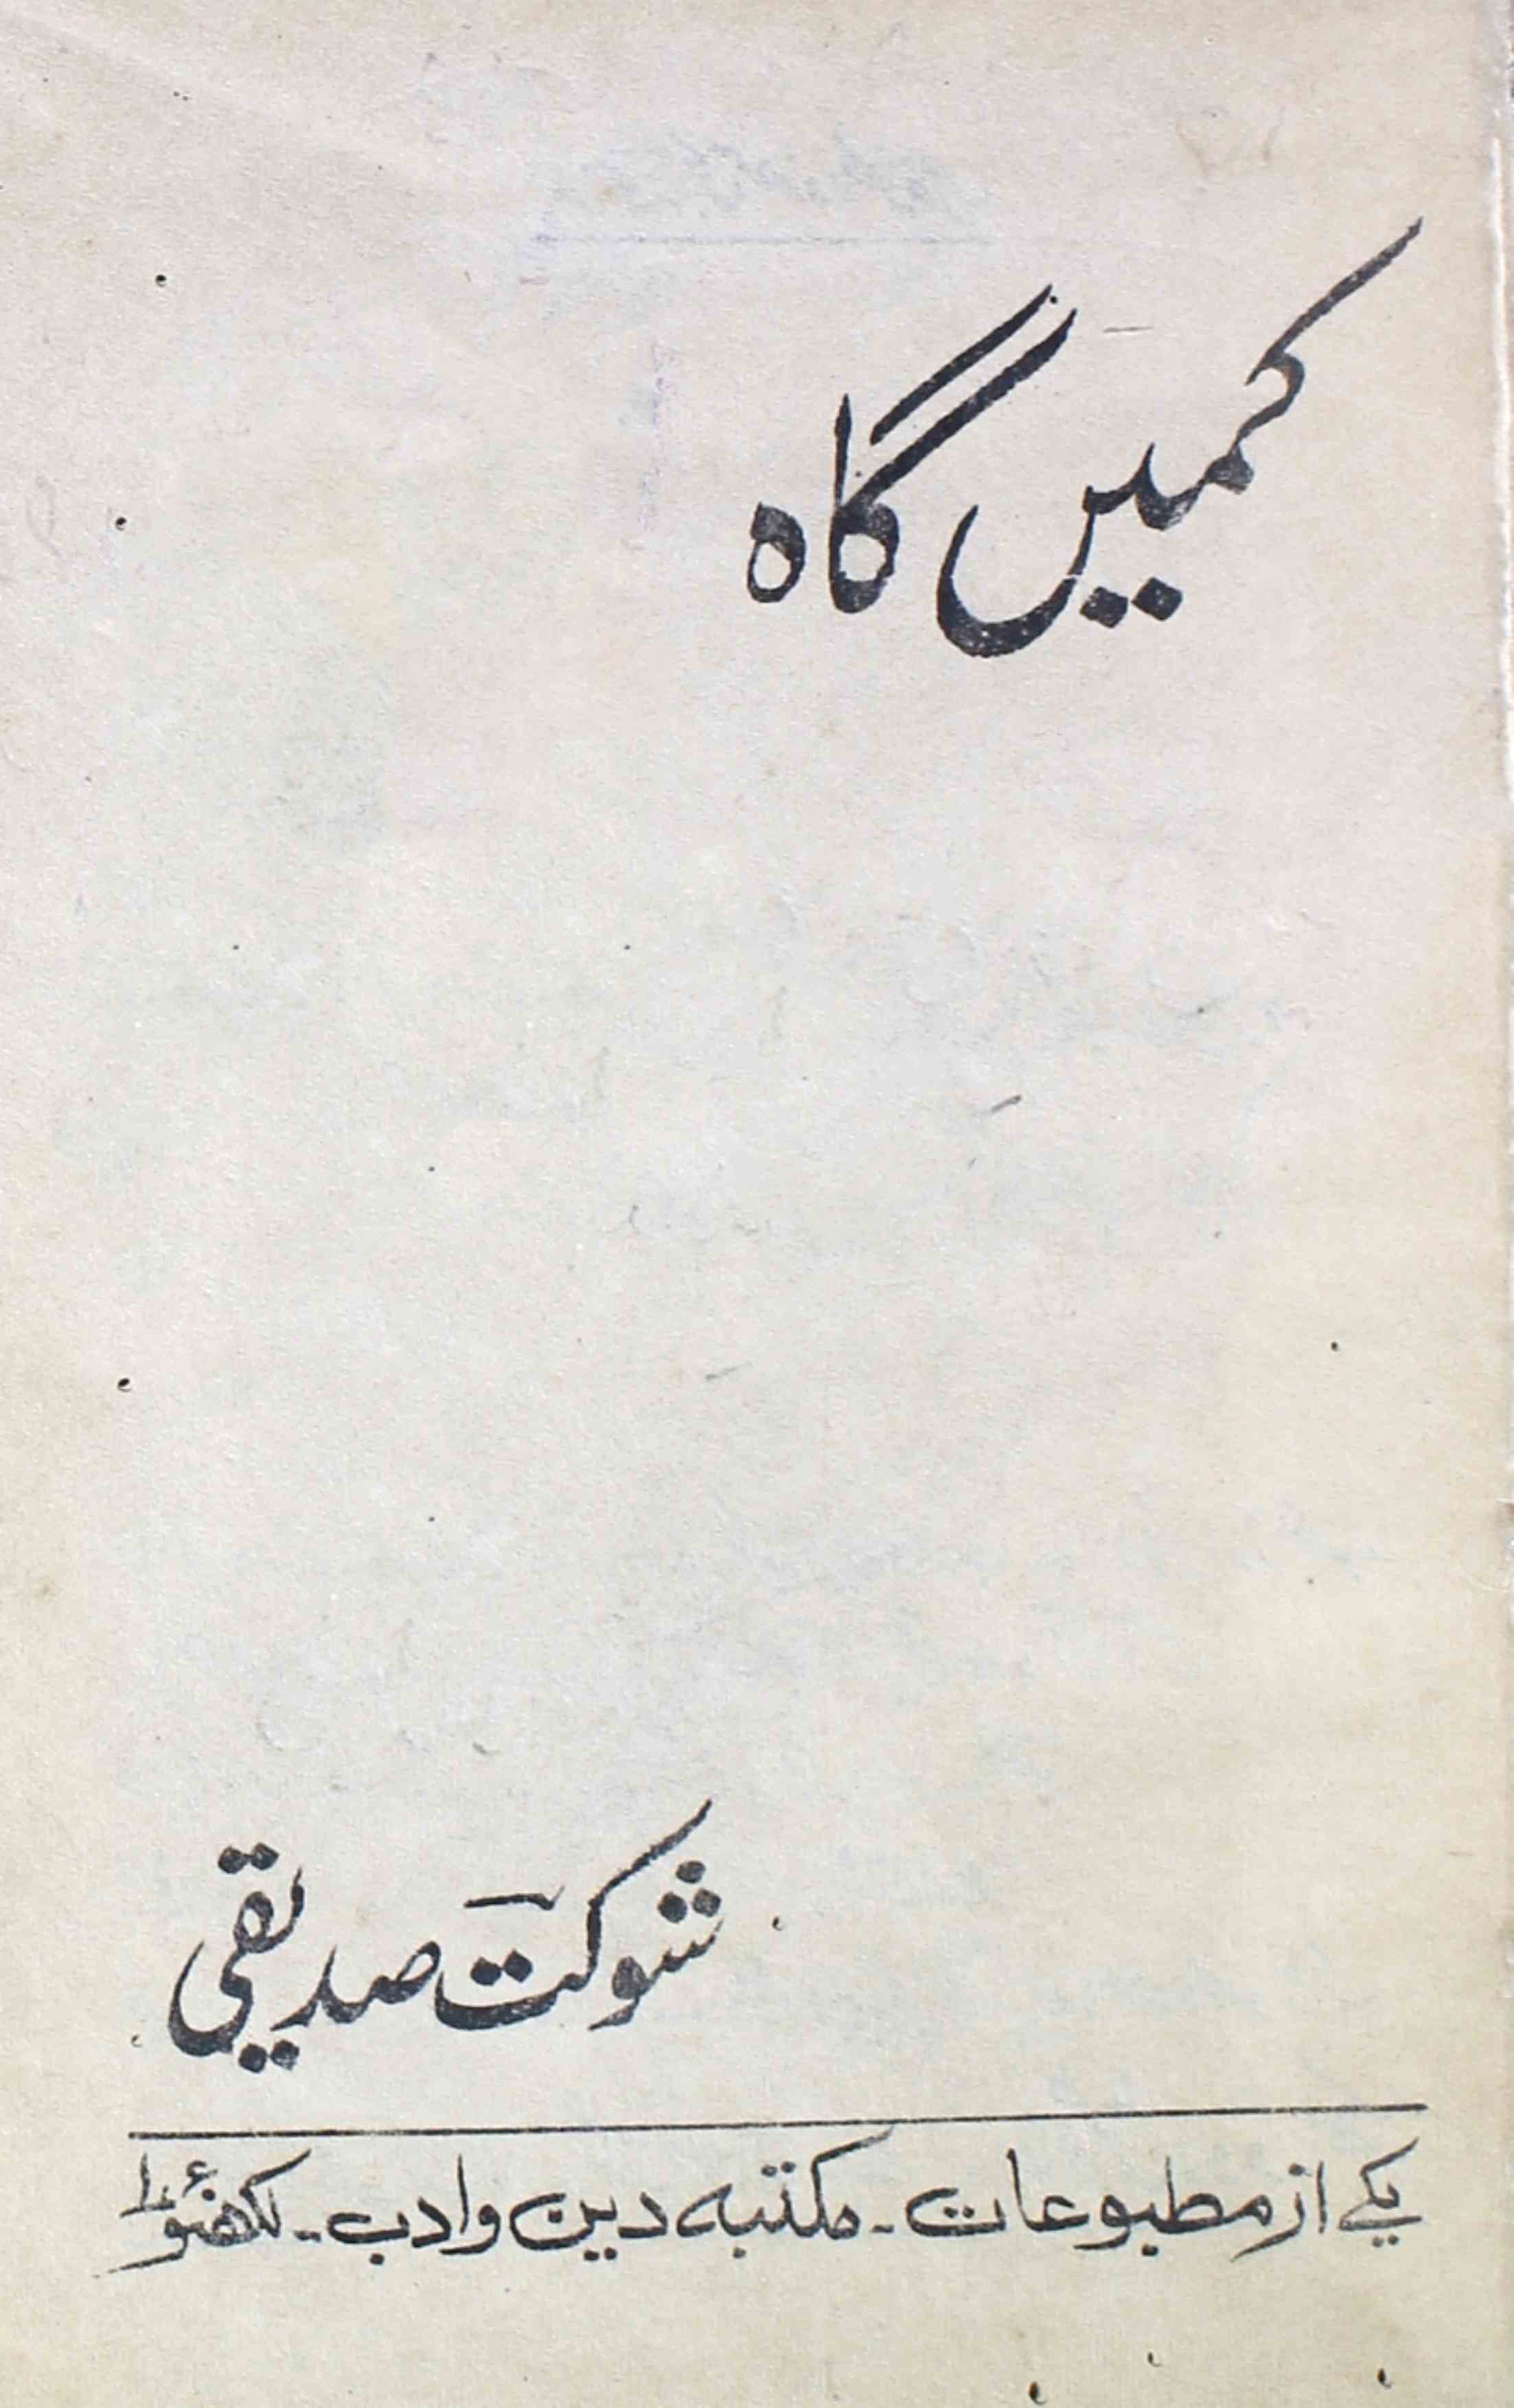 کمیں گاہ
شوکت صدیقی
یکے از مطبوعات۔ مکتبہ دین و ادب۔ لکھنؤ